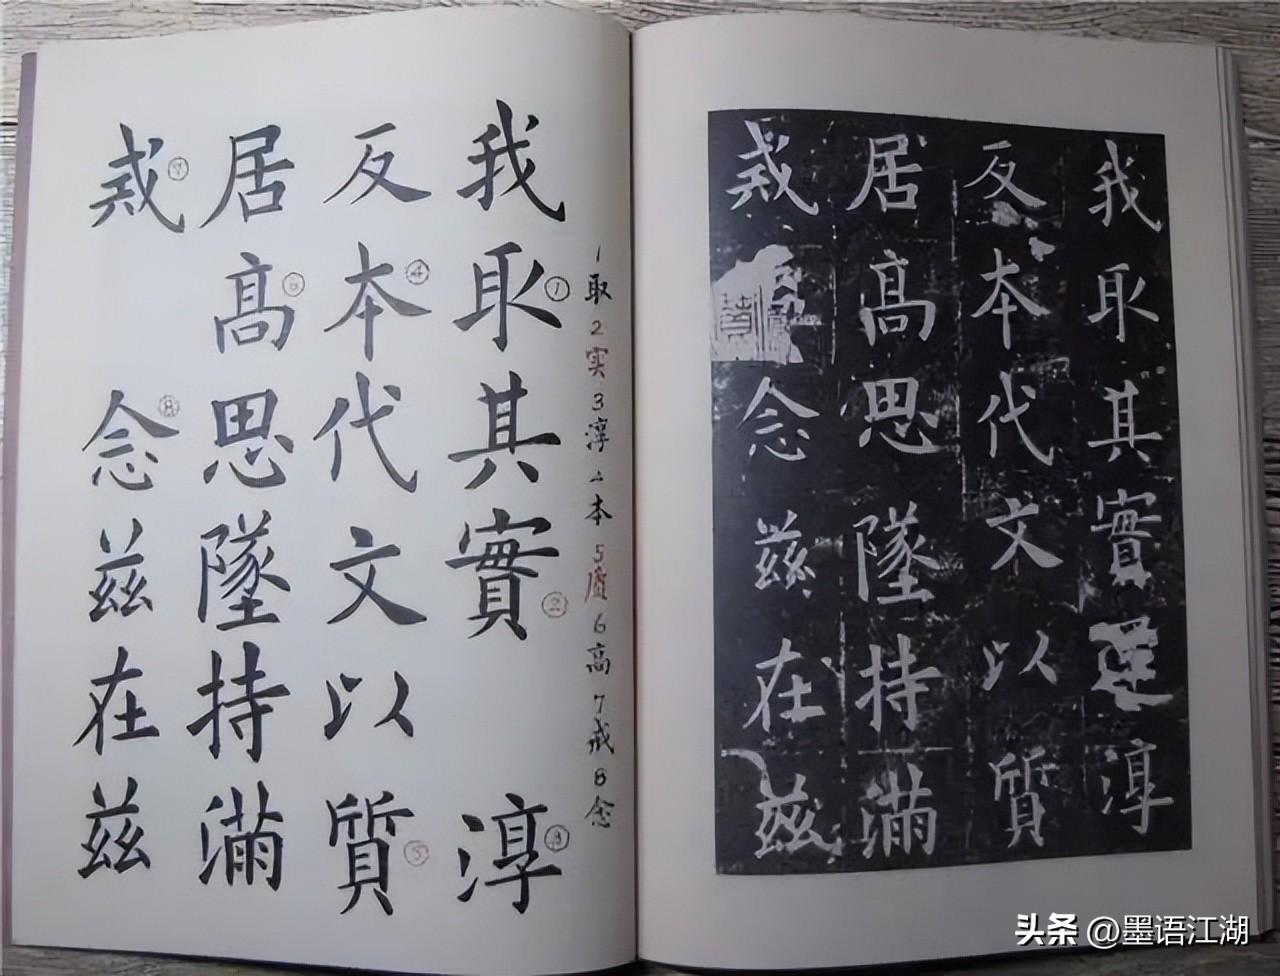 我取其實還淳
反本代文以質
居髙思墜持滿
戒念茲在茲
1取2实3淳4本5质6高7戒8念
我取①其實②淳③
反本④代文以質⑤
居髙⑥思墜持滿
戒⑦念⑧茲在茲
头条 @墨语江湖